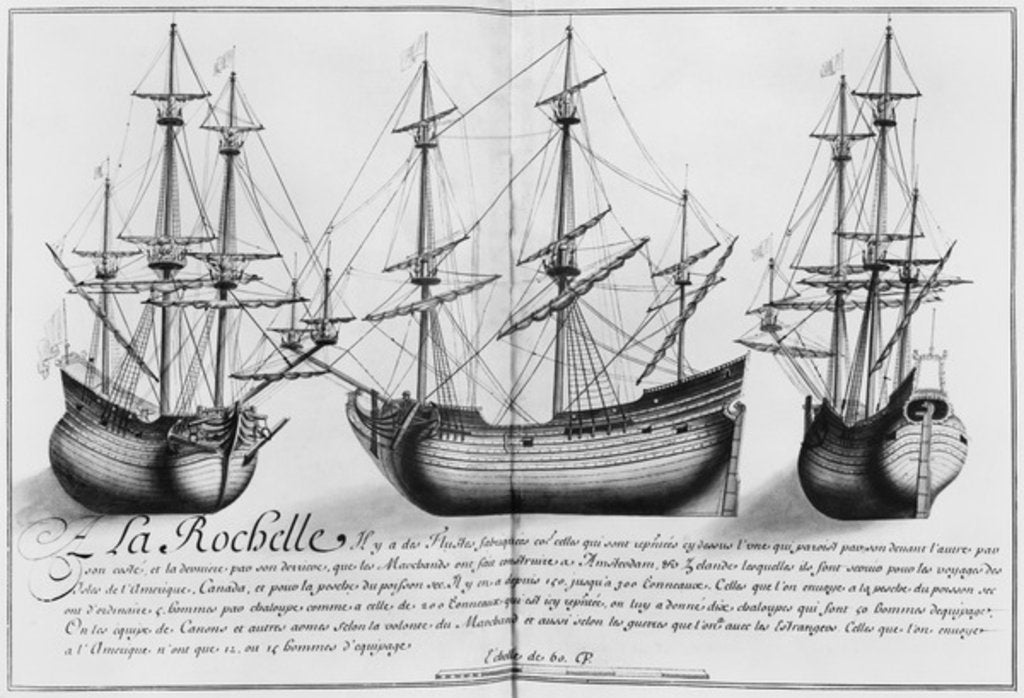 A La Rochelle Il y a des Flustes fabriquées coe celles qui sont repñtées cy dessus l'une qui paroist par son devant l'autre par
son costé, et la derniere par son derriere, que les Marchands ont fait construire a Amsterdam, & Zelande lesquelles ils font servir pour les voyages des
Isles de l'Amerique, Canada, et pour la pesche du poisson sec. Il y en a depuis 150. jusqu'a 300 tonneaux. Celles que l'on envoye a la pesche du poisson sec
ont d'ordinaire 5. hommes par chaloupe comme a celle de 200 tonneaux qui est icy repñtée, on luy a donné dix chaloupes qui font 50 hommes d'equipage.
On les équipe de Canons et autres armes selon la volonté du Marchand et aussi selon les guerres que l'on a avec les Estrangers Celles que l'on envoye
a l'Amerique n'ont que 12. ou 15 hommes d'equipage
Echelle de 60. P.